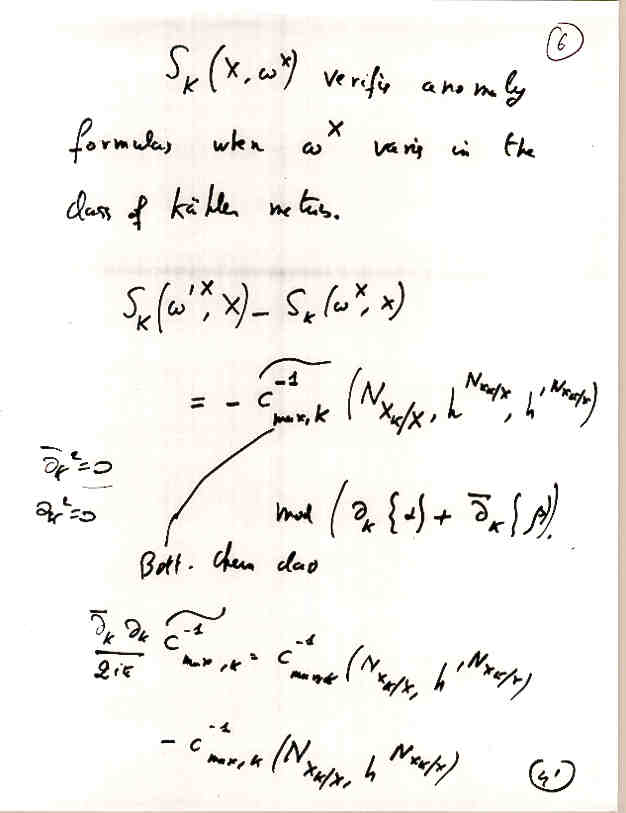 6
S_K (X, ω^X) verifies anomaly
formulas when ω^X varies in the
class of Kähler metrics.
S_K (ω'^X, X) - S_K (ω^X, X)
= - \widetilde{c^{-1}_{max, K}} (N_{X_K/X}, h^{N_{X_K/X}}, h'^{N_{X_K/X}})
\bar{∂}_K^2 = 0
∂_K^2 = 0
mod (∂_K {α} + \bar{∂}_K {β}).
Bott. Chern class
\frac{\bar{∂}_K ∂_K}{2iπ} \widetilde{c^{-1}_{max, K}} = c^{-1}_{max, K} (N_{X_K/X}, h'^{N_{X_K/X}})
- c^{-1}_{max, K} (N_{X_K/X}, h^{N_{X_K/X}})
4'